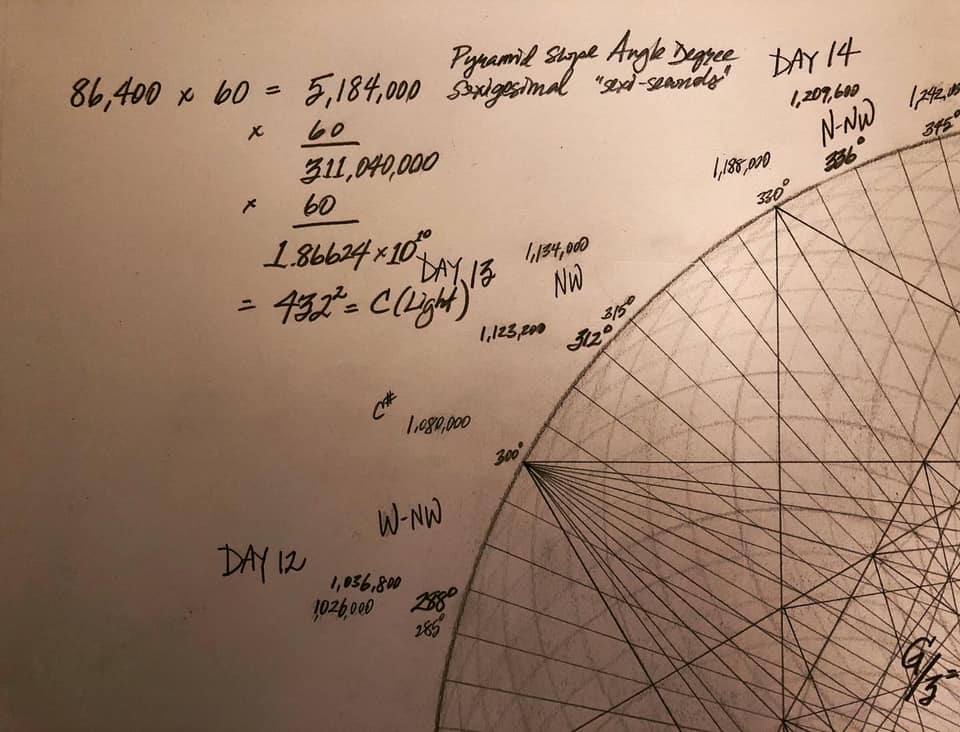 86,400 x 60 = 5,184,000
Pyramid Slope Angle Degree
Sexigesimal "sexi-seconds"
x 60
311,040,000
x 60
1.86624 x 10¹⁰
= 432² = C (Light)
DAY 14
1,209,600
N-NW
336°
345°
1,188,000
330°
DAY 13
1,134,000
NW
315°
1,123,200
312°
C#
1,080,000
300°
W-NW
DAY 12
1,036,800
288°
1,026,000
285°
G/3=